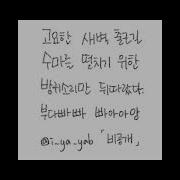 고요한 새벽 출근길
수마를 떨치기 위한
방귀소리만 뒤따랐다.
부다빠빠 빠아아앙
@i-ya-yab 「비공개」